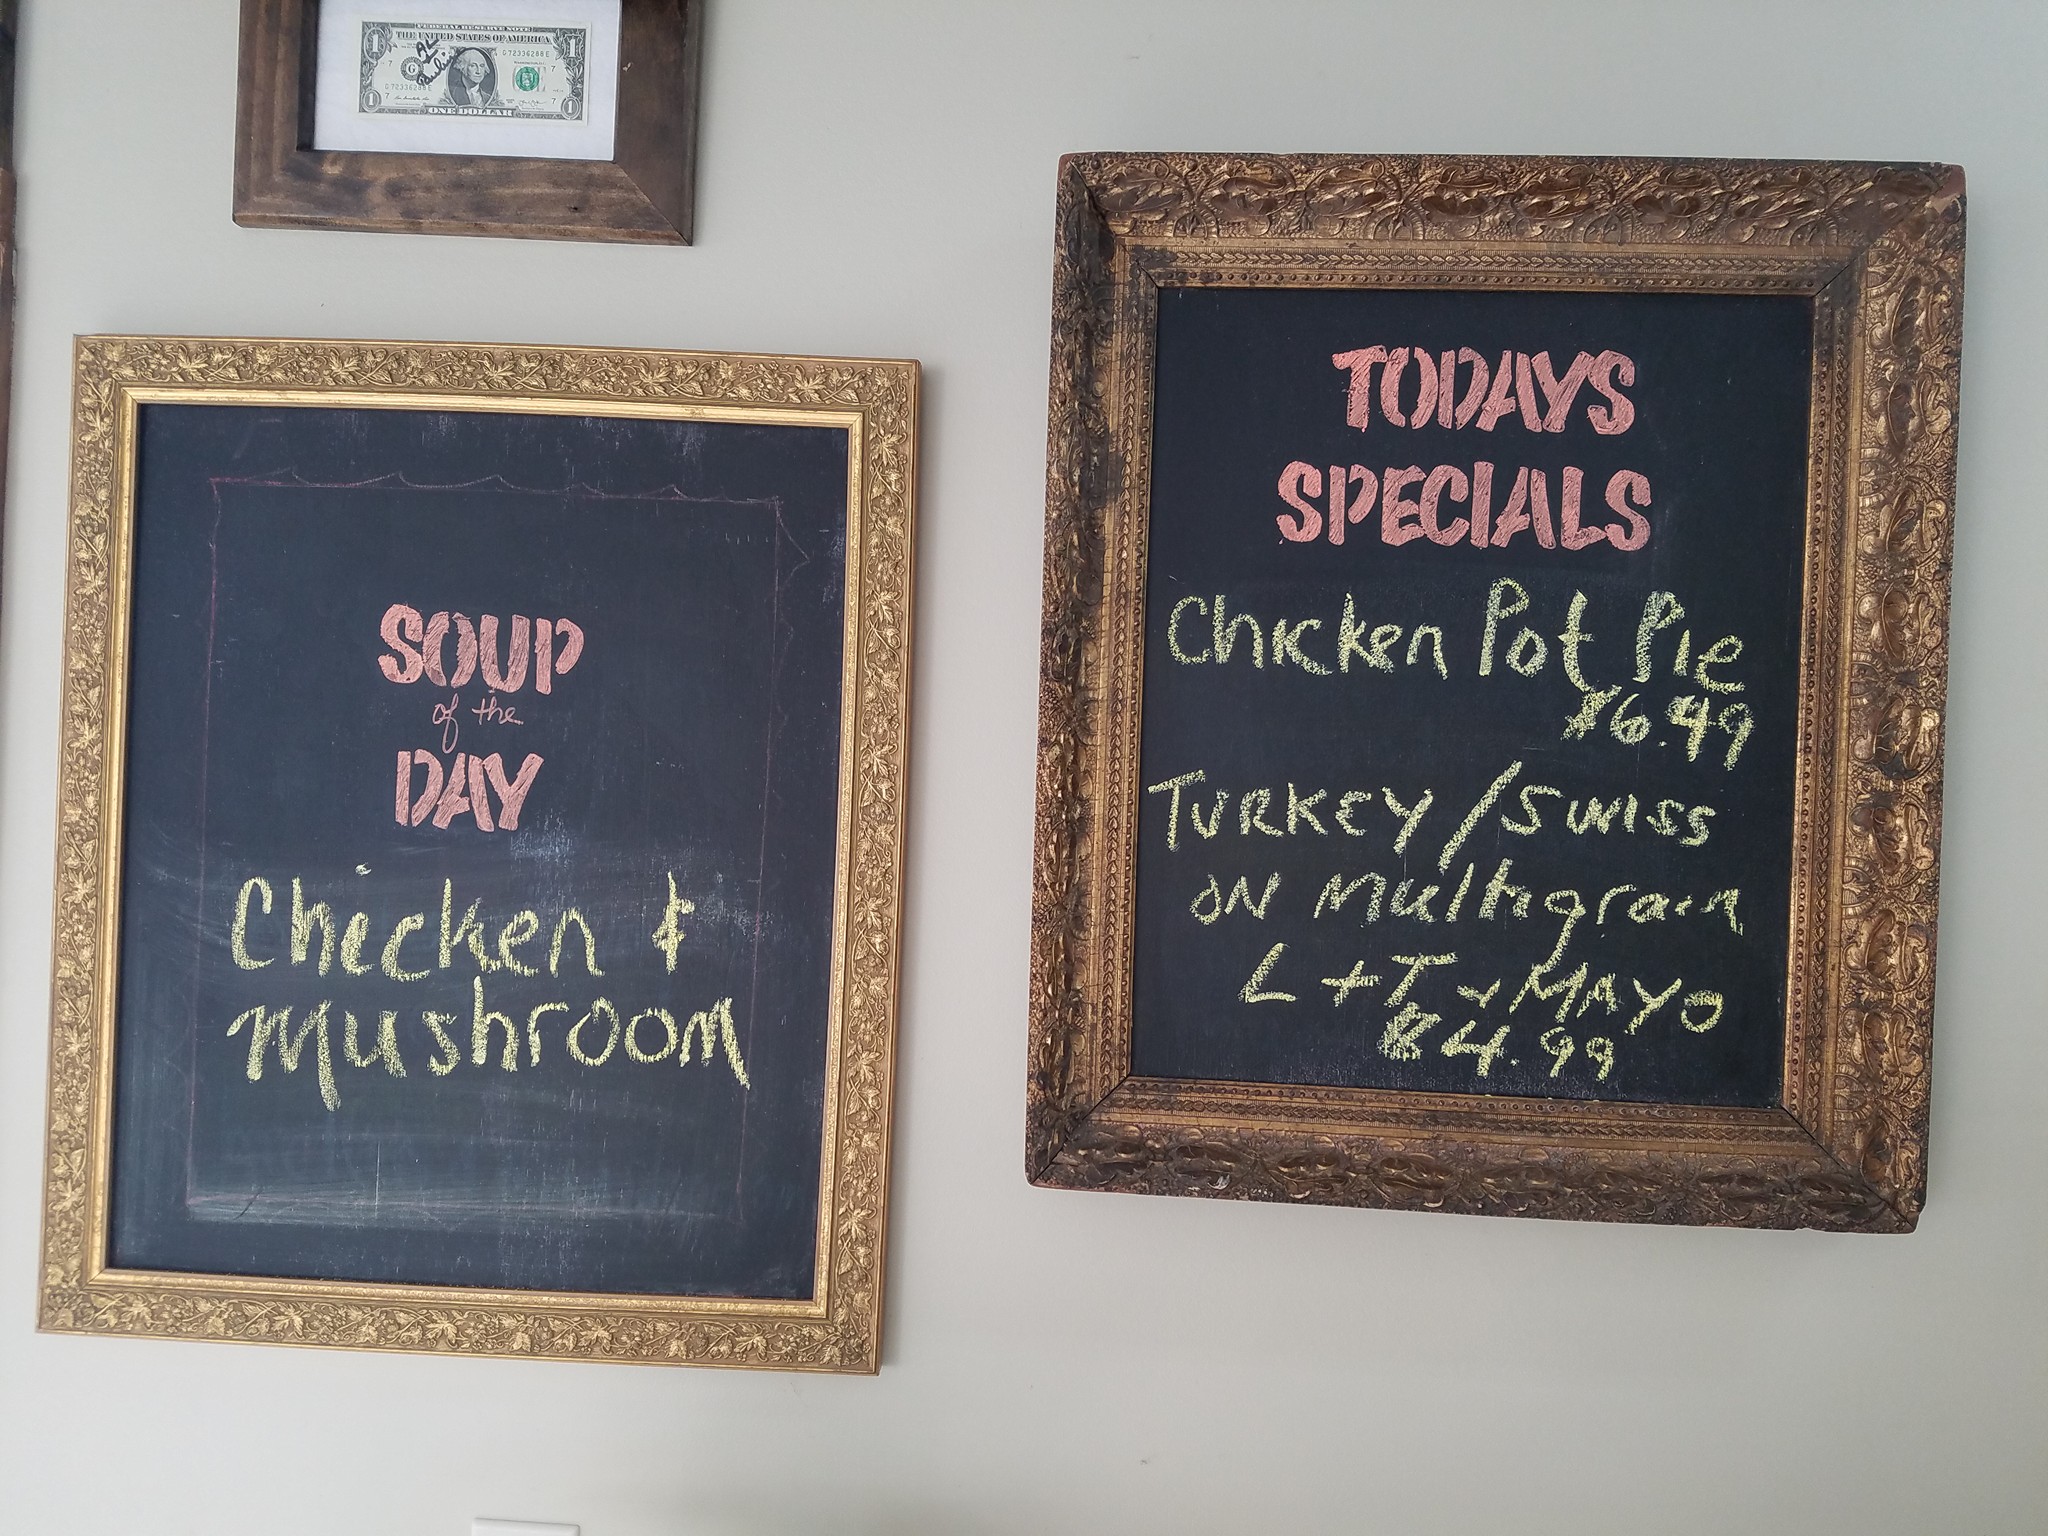 FEDERAL RESERVE NOTE
THE UNITED STATES OF AMERICA
D 72336288 E
D 72336288 E
ONE DOLLAR
SOUP
of the
DAY
Chicken +
Mushroom
TODAYS
SPECIALS
Chicken Pot Pie
$6.49
TURKEY/SWISS
ON Multigrain
L + T + MAYO
$4.99